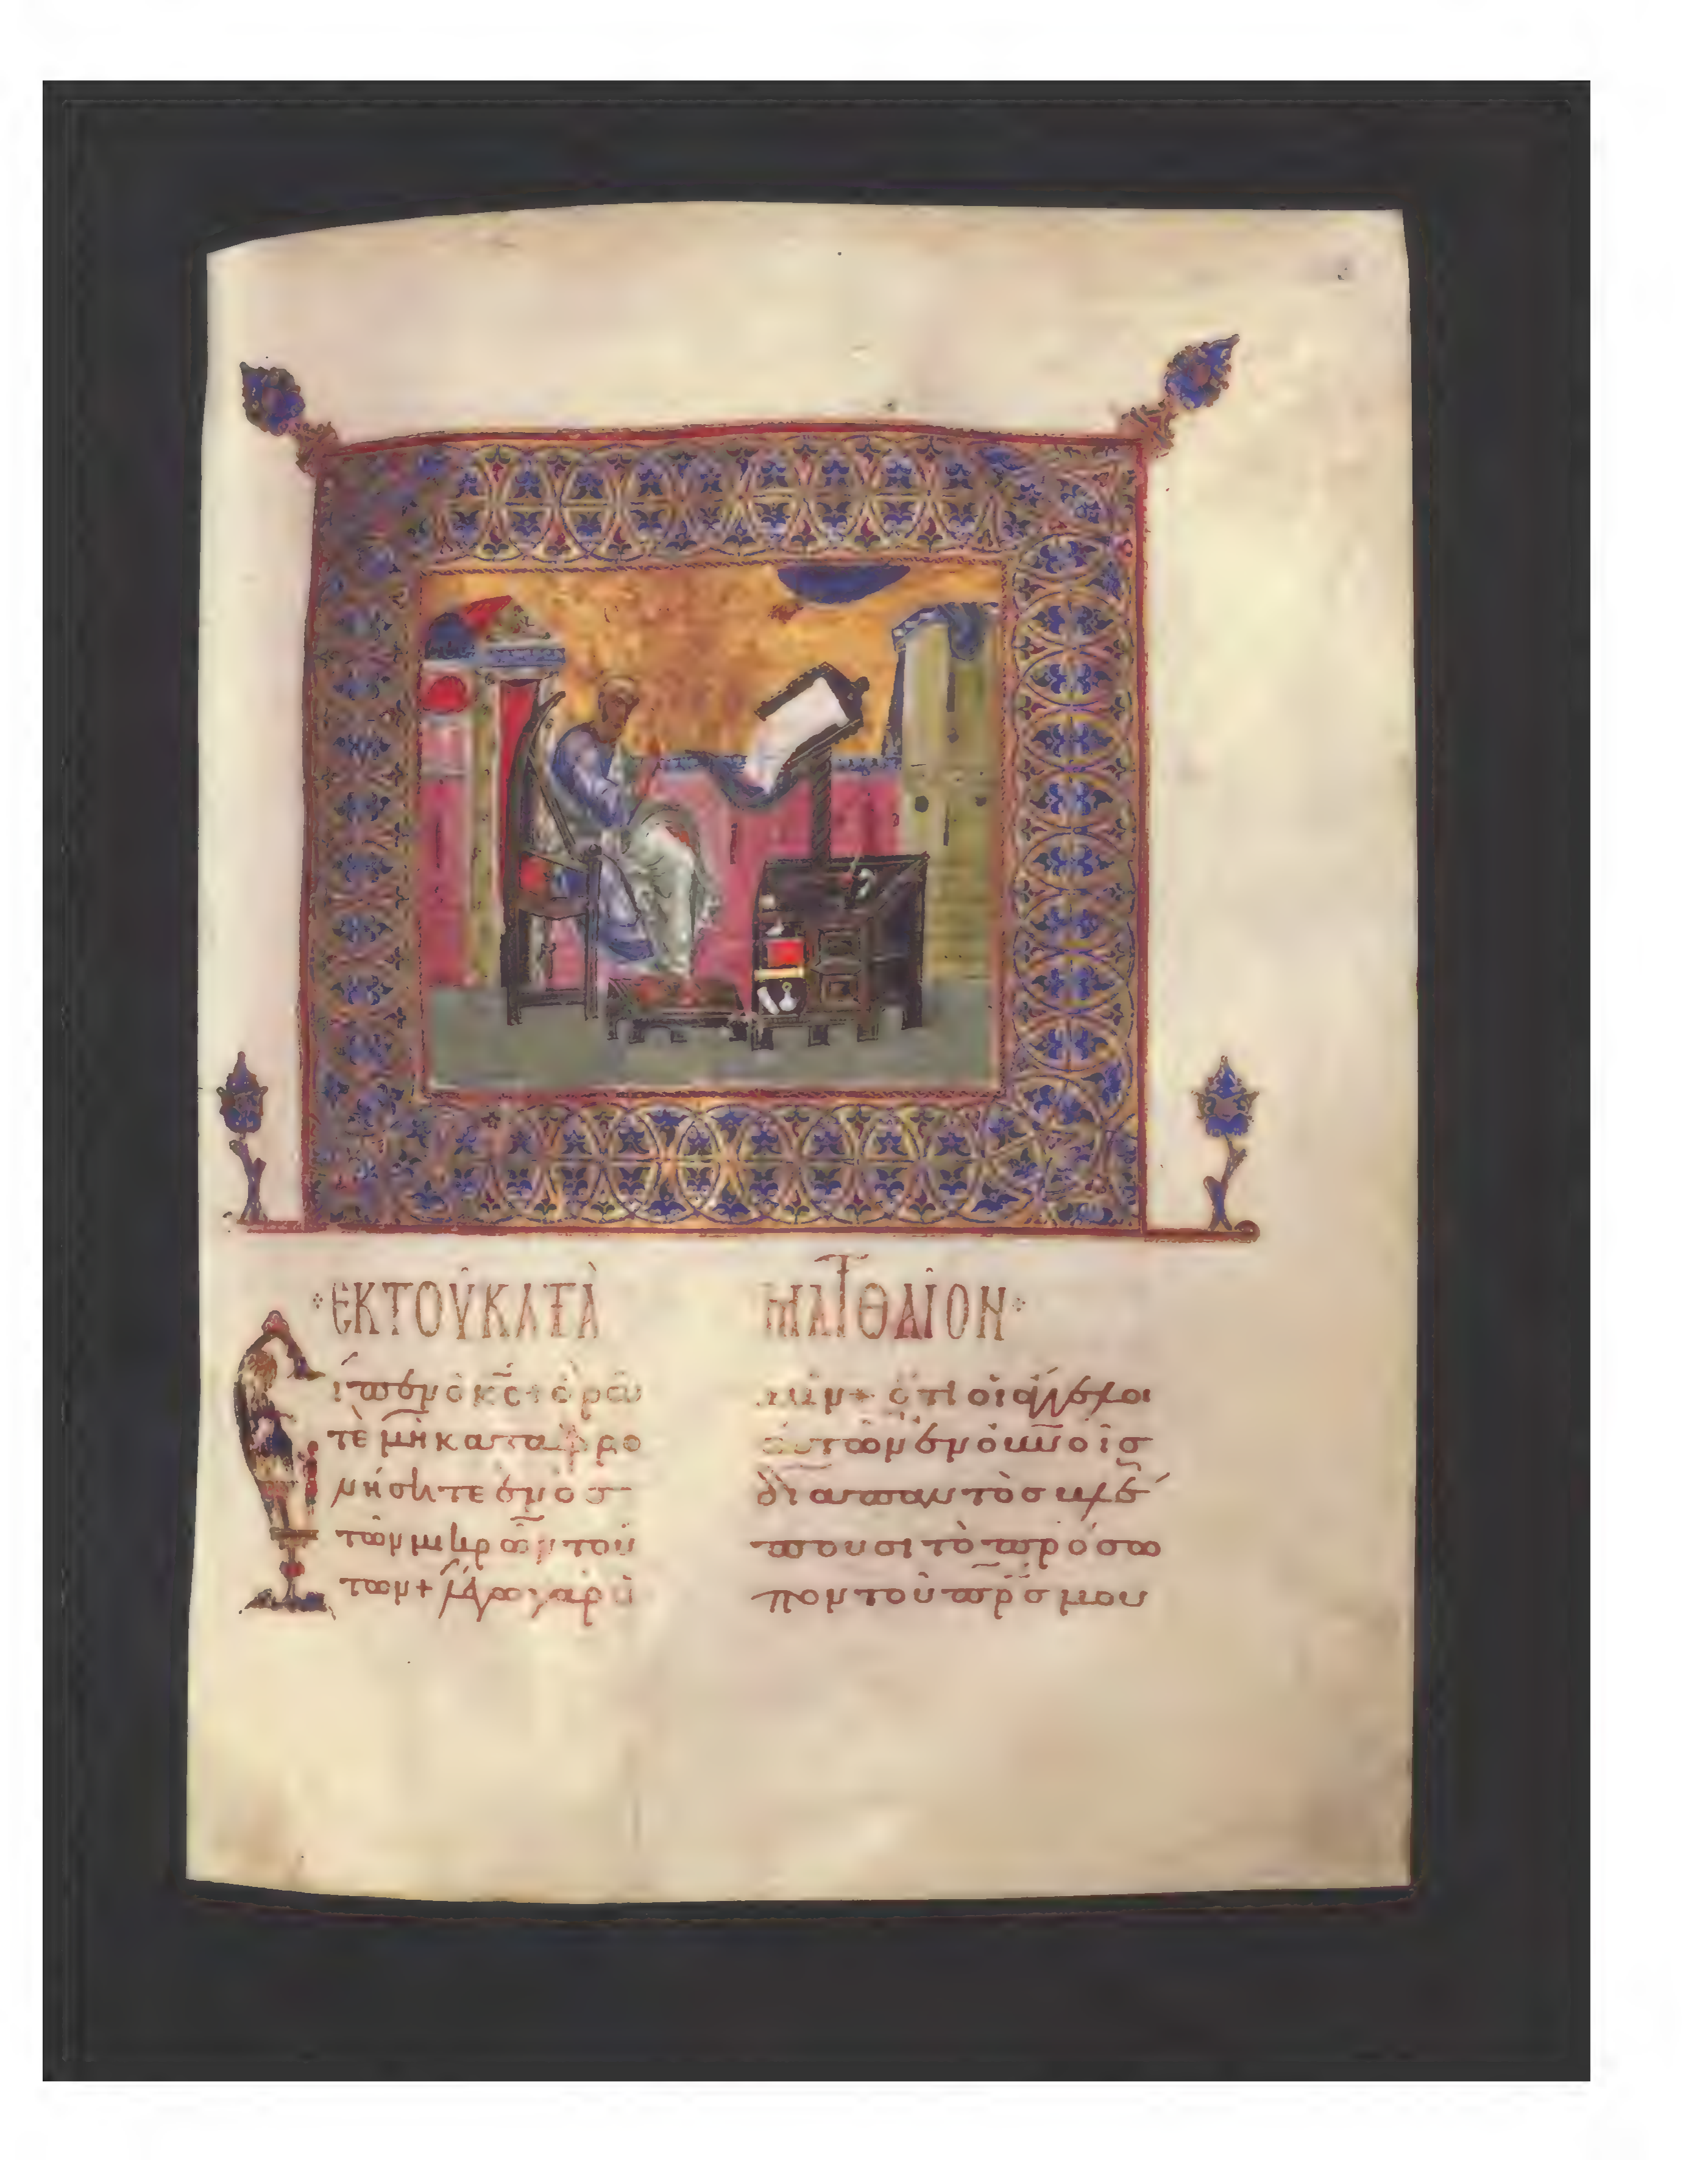 ΕΚΤΟΥ ΚΑΤΑ ΜΑΤΘΑΙΟΝ
ἶπεν ὁ κ̅ς̅ + ὁρᾶ
τὲ μὴ καταφρο
νήσητε ἑνὸσ
τῶν μικρῶν τού
των + λέγω γὰρ ὑ
μῖν + ὅτι οἱ ἄγγελοι
αὐτῶν ἐν οὐ̅ν̅οῖσ
διαπαντὸσ βλέ
πουσι τὸ πρόσω
πον τοῦ π̅ρ̅σ̅ μου